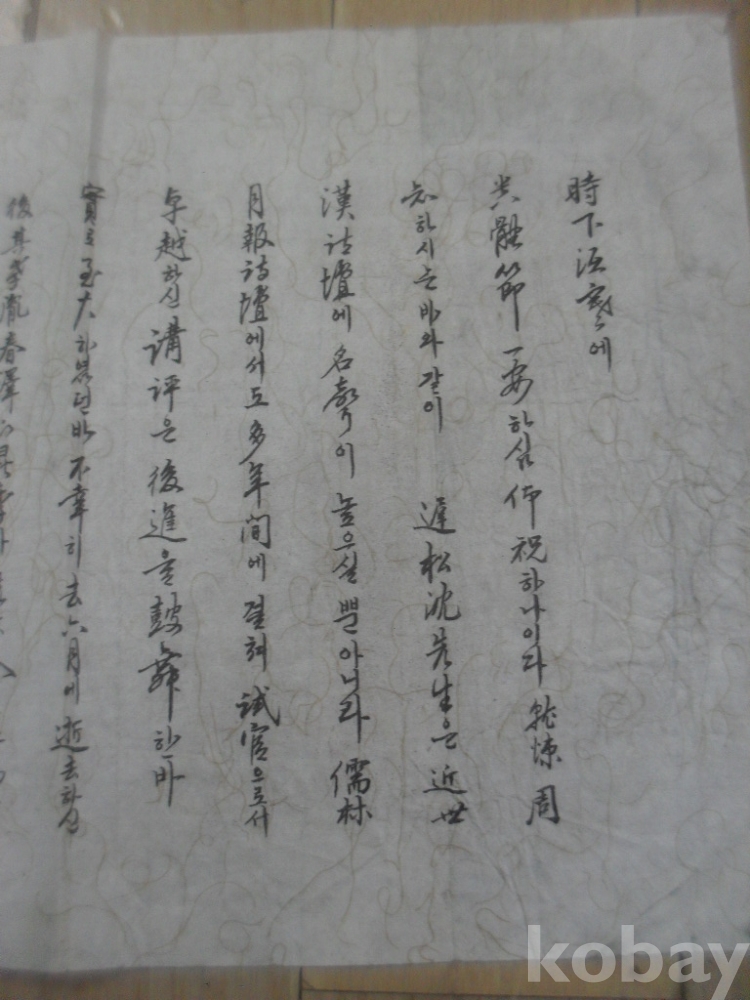 時下沍寒에
體節 一安하심 仰祝하나이다 就悚 周
知하시는 바와 같이 遲松 沈先生은 近世
漢詩壇에 名聲이 높으실 뿐아니라 儒林
月報詩壇에서도 多年間에 걸쳐 試官으로서
卓越하신 講評은 後進을 鼓舞한바
實로 至大하였던바 不幸히 去六月에 逝去하신
後
kobay